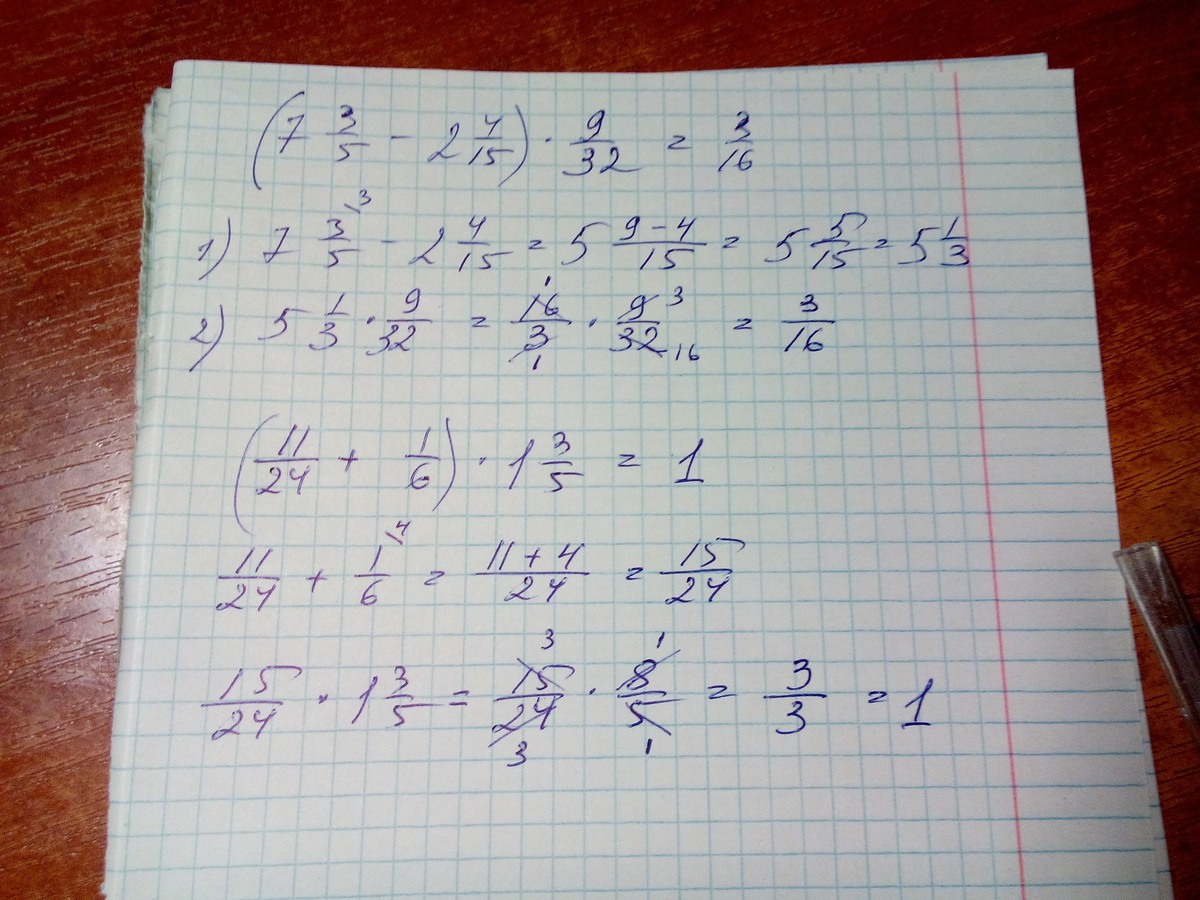 (7 3/5 - 2 4/15) · 9/32 = 3/16
1) 7 3/5 \3 - 2 4/15 = 5 (9-4)/15 = 5 5/15 = 5 1/3
2) 5 1/3 · 9/32 = 16 1/3 1 · 9 3/32 16 = 3/16
(11/24 + 1/6) · 1 3/5 = 1
11/24 + 1/6 \4 = (11+4)/24 = 15/24
15/24 · 1 3/5 = 15 3/24 3 · 8 1/5 1 = 3/3 = 1